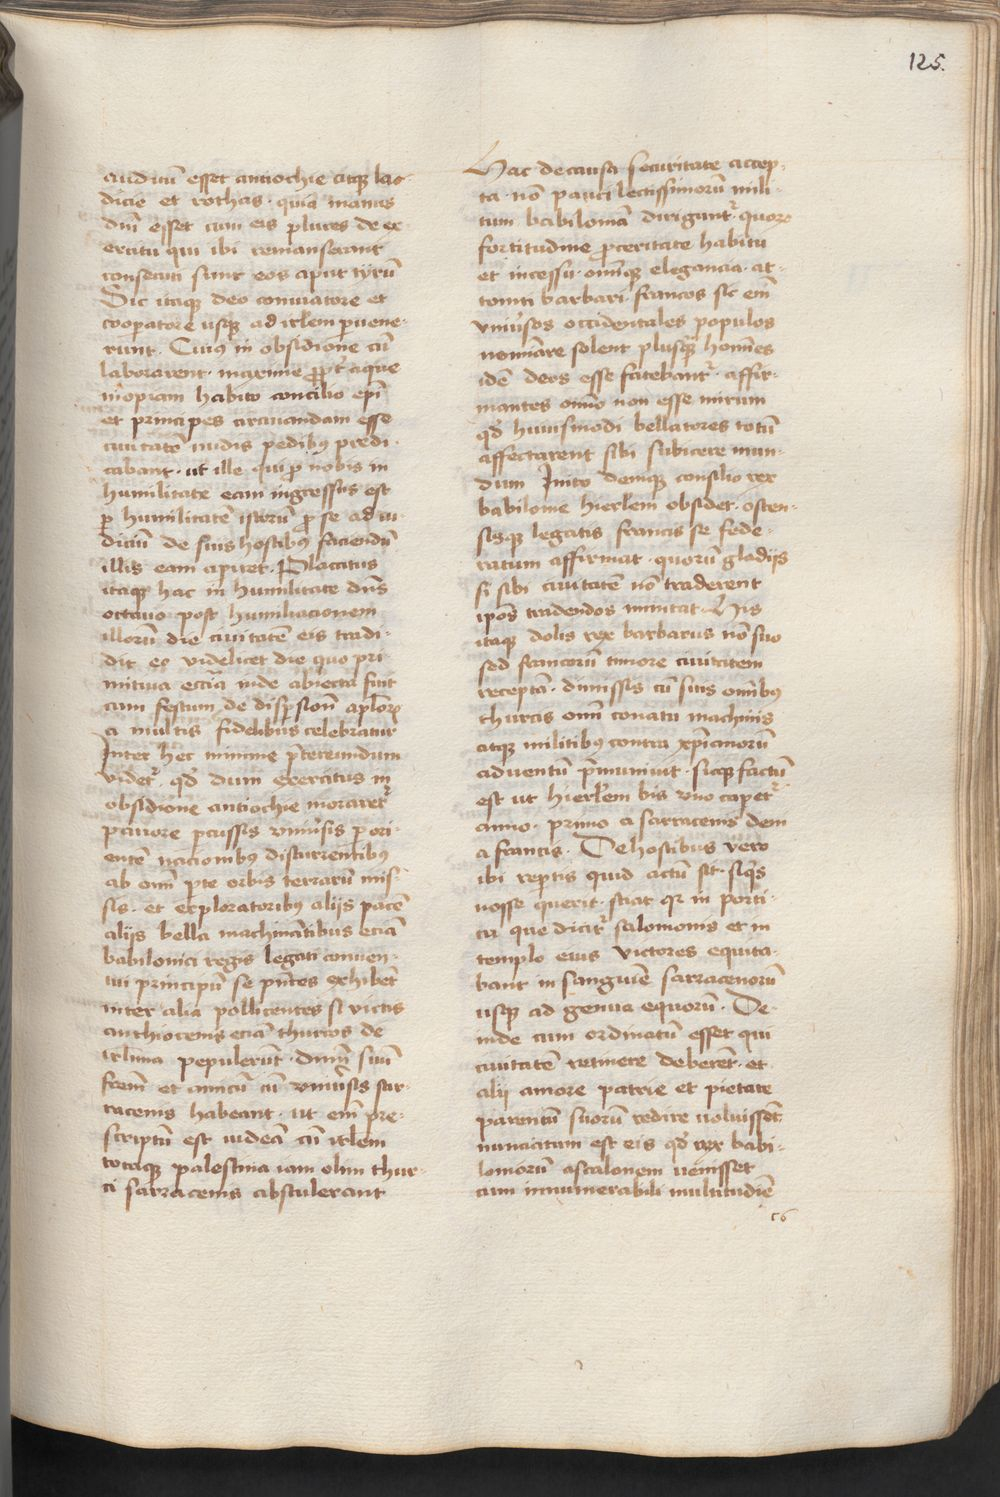 125.
auditū esset antiochie atq; lao-
dicie et rothas · quia manus
dnī esset cum eis plures de ex-
ercitu qui ibi remanserant
consecuti sunt eos aput tyrū
Sic itaq; deo conuiatore et
cooperatore usq; ad irl̄em peruene-
runt · Cuiꝰ in obsidione cū
laborarent · maxime ꝓpt̄ aque
inopiam habito concilio epī
et principes circuuandam esse
ciuitatē nudis pedibꝰ predi-
cabant · ut ille qui ꝓ nobis in
humilitate eam ingressus est
ꝑ humilitatē istorū ꝓ se ad iu-
diciū de suis hostibꝰ faciendū
illis eam apiret · Placatus
itaq; hac in humilitate dn̄s
octauo post humiliacionem
illorū die ciuitatē eis tradi-
dit eo videlicet die quo pri-
mitiua ecc̄ia inde abiecta fuit
cum festum de disꝑsionē apl̄oꝝ
a multis fidelibus celebratur
Inter hec minime p̄tereundum
videt᷑ · qd̄ dum exercitus in
obsidione antiochie moraret᷑
pauore ꝑcussis vniūsis ꝑ ori-
entē nacionibꝰ disturientibꝰ
ab om̄i ꝑte orbis terrarū mis-
sis · et exploratoribꝰ alijs pacē
alijs bella machinātibus eciā
babilonici regis legati conuen-
tui principū se pn̄tes exhibēt
inter alia pollicentes si victis
anthiocenis eciā thurcos de
irl̄ima pepulerūt · dnīm suū
frēm et amicū cū vniūsis sar-
racenis habeant · ut em̄ pre-
scriptū est iudeā cū irl̄em
totaq; palestina iam olim thur-
ci sarracenis abstulerant
Hac de causa securitate accep-
ta · nō pauci lectissimorū mili-
tum babiloniā dirigunt᷑ · quorꝝ
fortitudine ꝓceritate habitu
et incessu · om̄iq; elegancia · at-
toniti barbari · francos sic em̄
vniūsos occidentales populos
nominare solent plusq̄ hom̄nes
idē deos esse fatebant᷑ · affir-
mantes om̄o non esse mirum
qd̄ huiusmodi bellatores totū
affectarent sibi subicere mun-
dum Inito deniq; consilio rex
babilonie hierl̄em obsidet · osten-
sisq; legatis francis se fede-
ratum affirmat · quorū gladijs
si sibi ciuitatē nō traderent
ip̄os tradendos minitat · His
itaq; dolis rex barbarus nō suo
sed francorū timore ciuitatem
receptā · dimissis cū suis omībꝰ
thurcis om̄i conatu machinis
atq; militibꝰ contra xp̄ianorū
aduentū p̄muniuit · sicq; factū
est ut hierl̄em bis vno capet᷑
anno · primo a sarracenis dem
a francis · De hostibus vero
ibi reꝑtis quid actū sit · siq̄s
nosse querit · sciat qr in porti-
cu que dicit᷑ salomonis et in
templo eius victores equita-
bant in sanguīe sarracenorū
usq; ad genua equorū · De-
inde cum ordinatū esset qui
ciuitatē retinere deberēt · et
alij amore patrie et pietate
parentū suorū redire uoluissēt
nunciatum est eis qd̄ rex babi-
loniorū ascalonem uenisset
cum innumerabili multitudīe